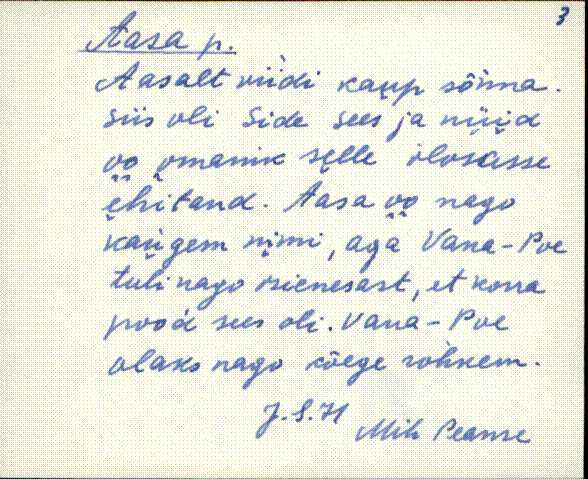 3
Aasa p.
Aasalt viidi kaup sõnna.
Siis oli Side sees ja nüüd
oo omanik selle ilosasse
ehitand. Aasa oo nago
kaugem nimi, aga Vana-Poe
tuli nago isienesast, et korra
pood sees oli. Vana-Poe
olaks nago kõege rohkem.
J.S.H
Mih Peanse